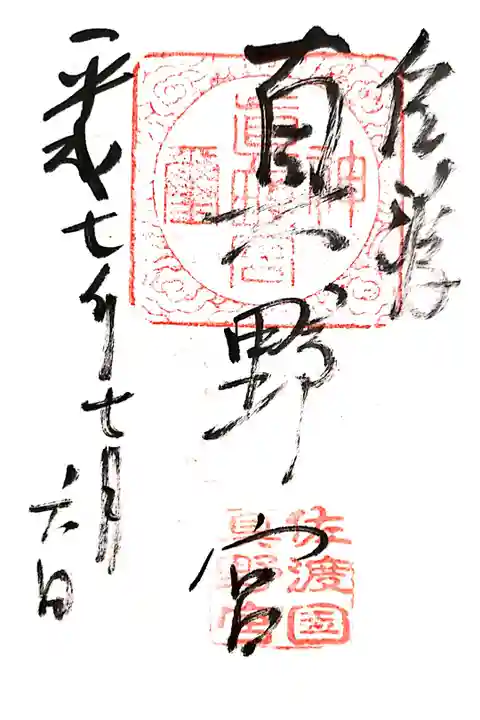 佐渡
真野宮
平成七年七月
六日
神
真野宮
璽
佐渡国
真野宮